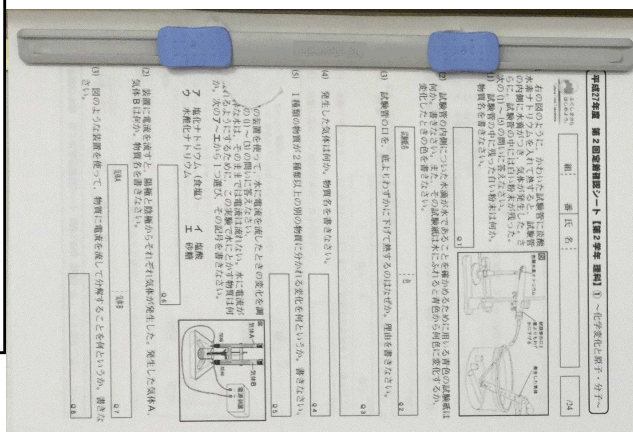 平成27年度 第2回定着確認シート【第2学年 理科】① ～化学変化と原子・分子～
組 番 氏名
/34
右の図のように、かわいた試験管に炭酸
水素ナトリウムを入れて熱すると、試験管
の内側に水滴がつき、気体が発生した。さ
らに、試験管の中には白い粉末が残った。
次の(1)～(5)の問いに答えなさい。
図
(1) 試験管の中に残った白い粉末は何か。
物質名を書きなさい。
Q1
(2) 試験管の内側についた水滴が水であることを確かめるために用いる青色の試験紙は
何か、書きなさい。また、その試験紙は水にふれると青色から何色に変化するか、
変化したときの色を書きなさい。
試験紙名
色
Q2
(3) 試験管の口を、底よりわずかに下げて熱するのはなぜか。理由を書きなさい。
Q3
(4) 発生した気体は何か。物質名を書きなさい。
Q4
(5) 1種類の物質が2種類以上の別の物質に分かれる変化を何というか。書きなさい。
Q5
の装置を使って、水に電流を流したときの変化を調
の(1)～(3)の問いに答えなさい。
な水は、そのままでは電流は流れない。水に電流が
るようにするために、この実験で水にとかす物質は何
か。次のア～エから1つ選び、その記号を書きなさい。
ア 塩化ナトリウム(食塩) イ 塩酸
ウ 水酸化ナトリウム エ 砂糖
Q6
図
気体A
気体B
電源装置
(2) 装置に電流を流すと、陽極と陰極からそれぞれ気体が発生した。発生した気体A、
気体Bは何か。物質名を書きなさい。
気体A
気体B
Q7
(3) 図のような装置を使って、物質に電流を流して分解することを何というか。書きな
Q8